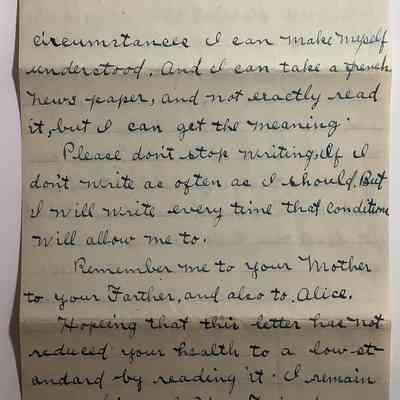 circumstances I can make myself
understood. And I can take a french
news paper, and not exactly read
it, but I can get the meaning.
Please don't stop writing, If I
don't write as often as I should. But
I will write every time that condition
will allow me to.
Remember me to your Mother
to your Farther, and also to Alice.
Hopeing that this letter has not
reduced your health to a low-st-
andard by reading it. I remain